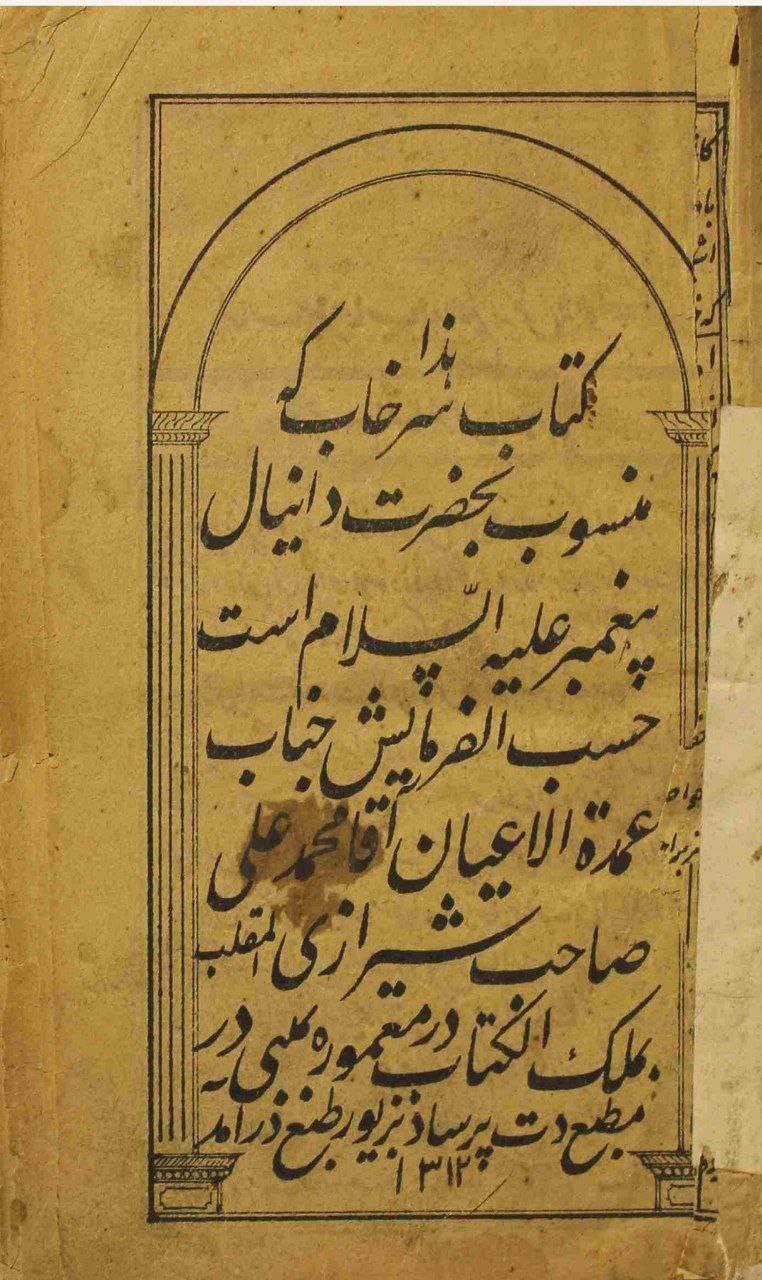 کتاب هذا سرخاب که
منسوب بحضرت دانیال
پیغمبر علیه السّلام است
حسب الفرمایش جناب
عمدة الاعیان آقا محمد علی
صاحب شیرازی المقلب
بملک الکتاب در معموره بمبئی در
مطبع دت پرساد بزیور طبع درآمد
۱۳۱۲